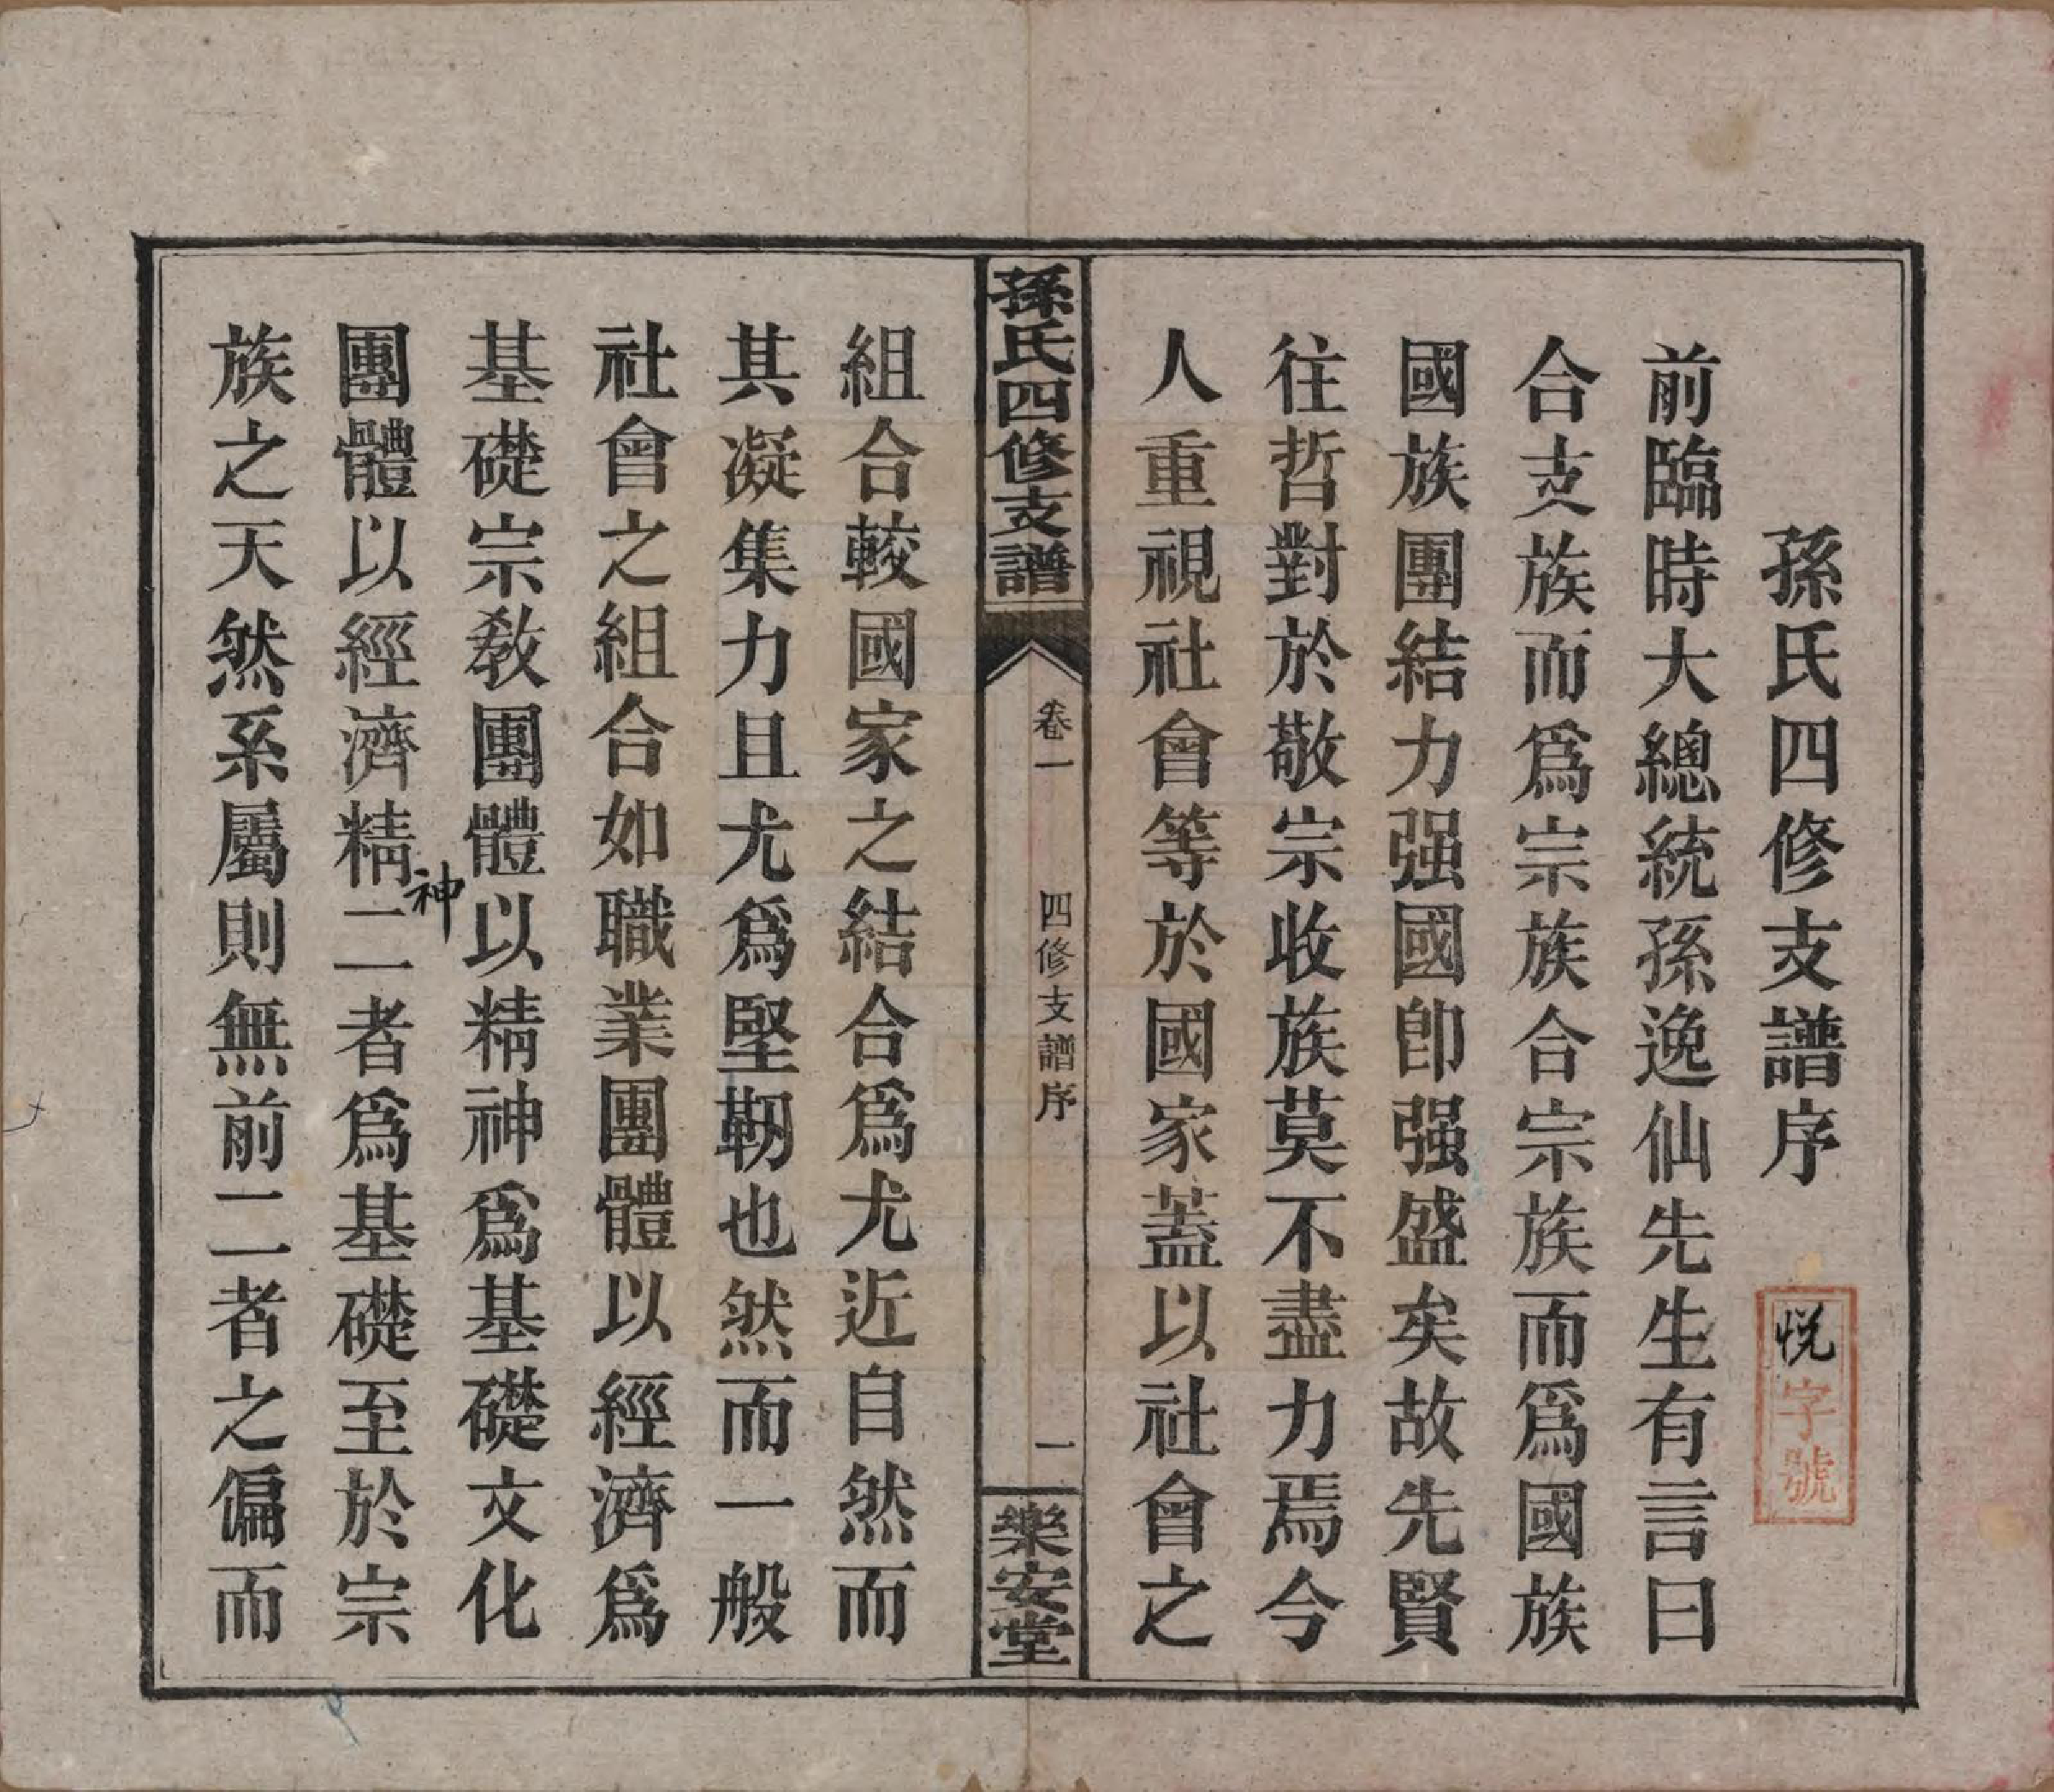 孫氏四修支譜序
悅字號
前臨時大總統孫逸仙先生有言曰
合支族而爲宗族合宗族而爲國族
國族團結力强國卽强盛矣故先賢
往哲對於敬宗收族莫不盡力焉今
人重視社會等於國家蓋以社會之
孫氏四修支譜
卷一
四修支譜序
一
樂安堂
組合較國家之結合爲尤近自然而
其凝集力且尤爲堅韌也然而一般
社會之組合如職業團體以經濟爲
基礎宗教團體以精神爲基礎文化
團體以經濟精神二者爲基礎至於宗
族之天然系屬則無前二者之偏而